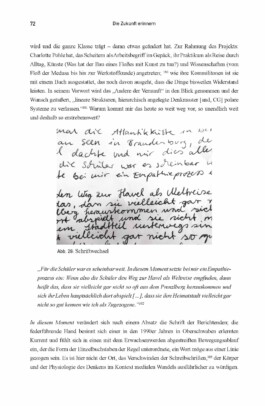 72
Die Zukunft erinnern
wird und die ganze Klasse trägt – daran etwas geändert hat. Zur Rahmung des Projekts:
Charlotte Pohl hat, das Scheitern als Arbeitsbegriff im Gepäck, ihr Praktikum als Reise durch
Alltag, Künste (Was hat der Bau eines Floßes mit Kunst zu tun?) und Wissenschaften (vom
Floß der Medusa bis hin zur Werkstoffkunde) angetreten;
mit einem Buch ausgestattet, das noch davon ausgeht, dass die Dinge bisweilen Widerstand
leisten. In seinem Vorwort wird das „Andere der Vernunft“ in den Blick genommen und der
Wunsch geäußert, „lineare Strukturen, hierarchisch angelegte Denkmuster [und, CG] polare
Systeme zu verlassen.“ Warum kommt mir das heute so weit weg vor, so unendlich weit
und deshalb so erstrebenswert?
mal die Atlantikküste in
an Seen in Brandenburg,
dachte und mir dies alles
die Schüler war es scheinbar
te bei mir ein Empathieprozess
den Weg zur Havel als Weltreise
das, dass sie vielleicht gar
berg herauskommen und sich
abspielt und sie nicht
Stadtteil unterwegs sin
vielleicht gar nicht so
Abb. 28: Schriftwechsel
„Für die Schüler war es scheinbar weit. In diesem Moment setzte bei mir ein Empathie-
prozess ein. Wenn also die Schüler den Weg zur Havel als Weltreise empfinden, dann
heißt das, dass sie vielleicht gar nicht so oft aus dem Prenzlberg herauskommen und
sich ihr Leben hauptsächlich dort abspielt [...], dass sie ihre Heimatstadt vielleicht gar
nicht so gut kennen wie ich als Zugezogene.“
In diesem Moment verändert sich nach einem Absatz die Schrift der Berichtenden; die
federführende Hand besinnt sich einer in den 1990er Jahren in Oberschwaben erlernten
Kurrent und fädelt sich in einen mit dem Erwachsenwerden abgestreiften Bewegungsablauf
ein, der die Form der Umlaufbuchstaben der Regel unterordnete, ein Wort möge aus einer Linie
gezogen sein. Es ist hier nicht der Ort, das Verschwinden der Schreibschriften, der Körper
und der Physiologie des Denkens im Kontext medialen Wandels ausführlicher zu würdigen.